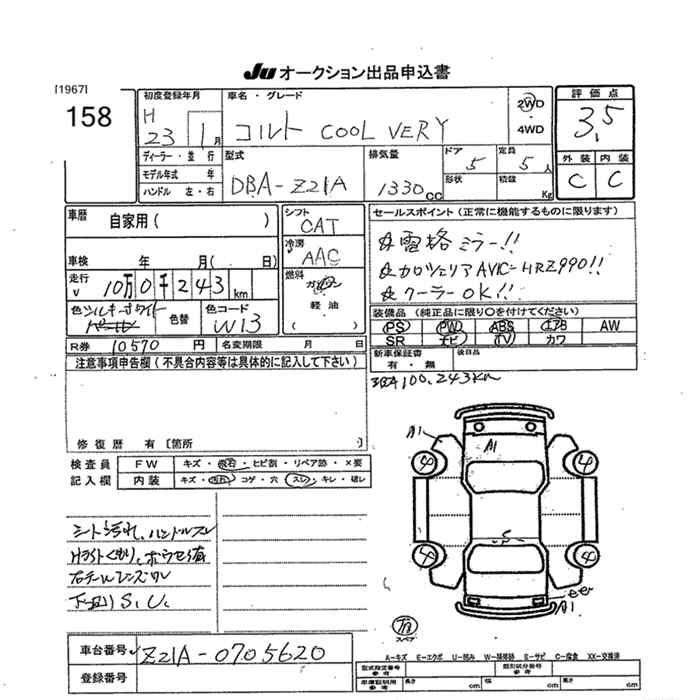 JU オークション出品申込書
[1967]
158
初度登録年月
H 23 1月
車名・グレード
コルト COOL VERY
2WD
4WD
評価点
3.5
ディーラー・並行
モデル年式 年
ハンドル 左・右
型式
DBA-Z21A
排気量
1330cc
ドア
5
形状
定員
5人
積載
Kg
外装 内装
C C
車歴
自家用( )
車検 年 月( 日)
走行
10万0千243km
色 シルキーホワイトパール
色替
色コード
W13
シフト
CAT
冷房
AAC
燃料
ガソリン
軽油
( )
セールスポイント(正常に機能するものに限ります)
☆電格ミラー!!
☆カロッツェリア AVIC-HRZ990!!
☆クーラーOK!!
装備品(純正品に限り○を付けてください)
PS PW ABS エアB AW
SR ナビ TV カワ
R券 10570 円
名変期限 月 日
新車保証書
有・無
後日品
100,243km
注意事項申告欄(不具合内容等は具体的に記入して下さい)
修復歴 有[箇所 ]
検査員
記入欄
FW キズ・飛石・ヒビ割・リペア跡・×要
内装 キズ・汚れ・コゲ・穴・スレ・キレ・破レ
シート汚れ、ハンドルスレ
右テールレンズワレ
下回りS.U.
A1
A1
4 4
S
4 4
A1
スペア
A-キズ E-エクボ U-凹み W-補修跡 S-サビ C-腐食 XX-交換済
車台番号 Z21A-0705620
登録番号
型式指定番号
参考
類別区分番号
参考
車庫証明用
参考
長さ cm 幅 cm 高さ cm